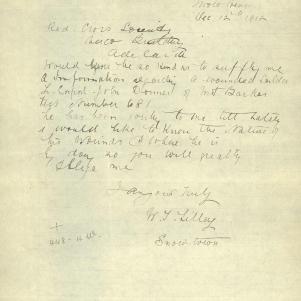 Snow town
Dec 12th 1916
Red Cross Society
Adelaide
Would you be so kind as to suffly me
a information regarding a wounded soldier
L. Corporl John Donner of Mt Barker
Regt Number 681
he has been to me till lately
I would like to know the Nature of
his wounds & where he is
by doing so you will greatly
Oblige me
yours truly
W. J. Lilley
Snowtown